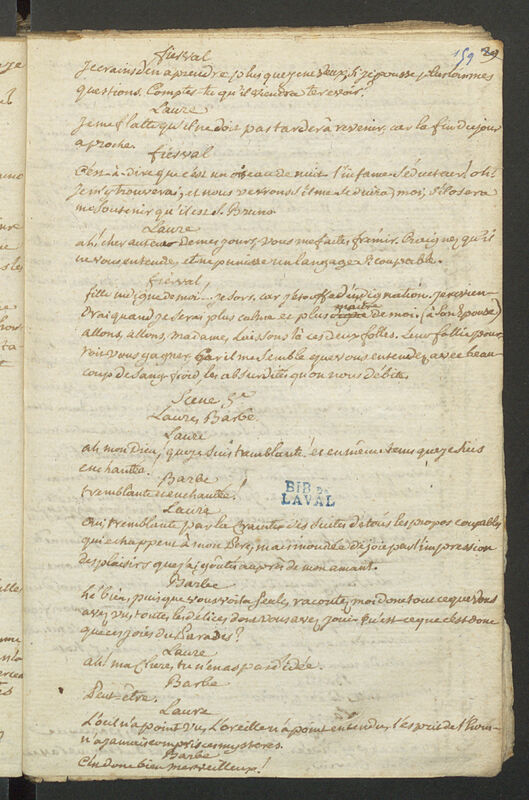 159 89
fierval
Je crains d'en aprendre plus que je ne veux, si je pousse plus loin mes
questions. Comptes-tu qu'il viendra te revoir?
Laure
Je me flatte qu'il ne doit pas tarder à revenir, car la fin du jour
aproche.
fierval
C'est-à-dire que c'est un oiseau de nuit. l'infame séducteur! oh!
j'en y trouverai, et nous verrons s'il me séduira, moi, s'il osera
me soutenir qu'il est S. Bruno
Laure
ah! cher auteur de mes jours, vous me faites fremir. Craignez qu'il
ne vous entende, et ne punisse un langage si coupable.
fierval,
fille indigne de moi... je sors, car j'étouffe d'indignation. Je revien-
drai quand je serai plus calme et plus maitre de moi. (à son Epouse)
allons, allons, madame, laissons là ces deux folles. Leur folie pour-
roit vous gagner, car il me semble que vous entendez avec beau-
coup de sang-froid les absurdités qu'on nous débite.
Scene 5e
Laure, Barbe
Laure
ah mon Dieu, que je suis tremblante! et en même tems que je suis
enchantée.
Barbe
tremblante et enchantée!
Laure
Oui, tremblante par la crainte des suites de tous les propos coupables
qui échappent à mon Pere, mais inondée de joie par l'impression
des plaisirs que j'ai goutés auprès de mon amant.
Barbe
hé bien, puisque vous voilà seule, racontez moi donc tout ce que vous
avez vu, toutes les délices dont vous avez joui. Qu'est-ce que c'est donc
que ces joies du Paradis?
Laure
ah! ma Chere, tu n'en as pas d'idée.
Barbe
Peut-être.
Laure
L'oeil n'a point vu, l'oreille n'a point entendu, l'esprit de l'hom-
n'a jamais compris ces mysteres.
Barbe
C'est donc bien merveilleux!
BIB DE
LAVAL